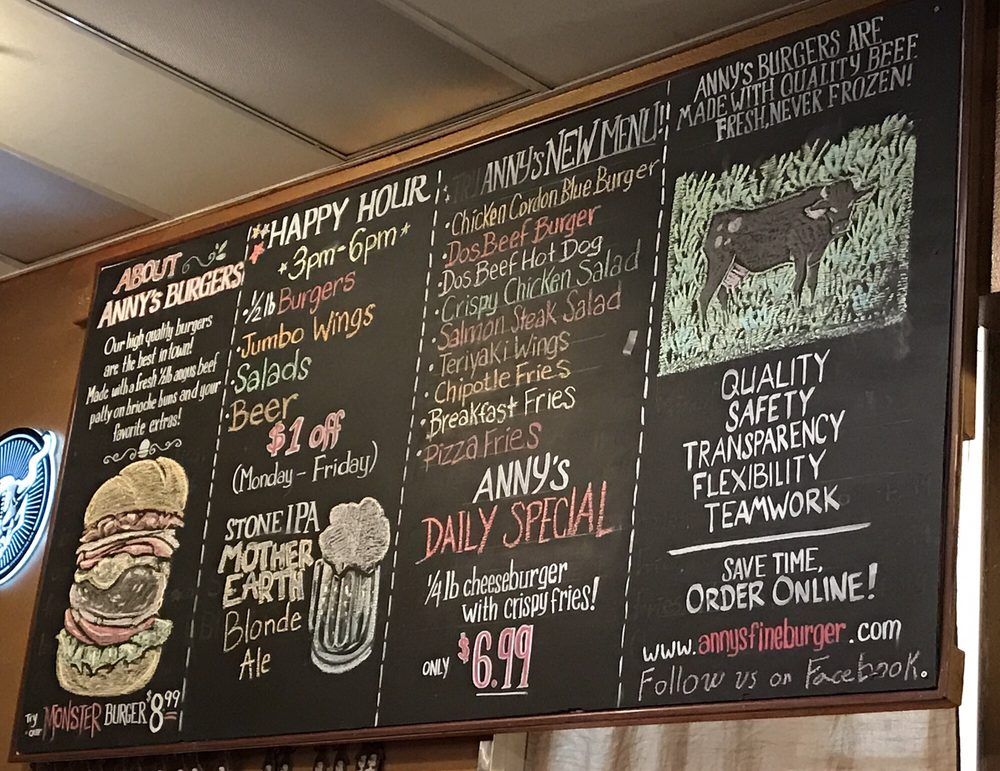 ABOUT
ANNY'S BURGERS
Our high quality burgers
are the best in town!
Made with a fresh ½lb angus beef
patty on brioche buns and your
favorite extras!
Try
our MONSTER BURGER $8.99
*HAPPY HOUR
*3pm-6pm*
·½ lb Burgers
·Jumbo Wings
·Salads
·Beer
$1 off
(Monday - Friday)
STONE IPA
MOTHER
EARTH
Blonde
Ale
ANNY'S NEW MENU!!
·Chicken Cordon Blue Burger
·Dos Beef Burger
·Dos Beef Hot Dog
·Crispy Chicken Salad
·Salmon Steak Salad
·Teriyaki Wings
·Chipotle Fries
·Breakfast Fries
·Pizza Fries
ANNY'S
DAILY SPECIAL
¼ lb cheeseburger
with crispy fries!
ONLY $6.99
ANNY'S BURGERS ARE
MADE WITH QUALITY BEEF.
FRESH, NEVER FROZEN!
QUALITY
SAFETY
TRANSPARENCY
FLEXIBILITY
TEAMWORK
SAVE TIME,
ORDER ONLINE!
www.annysfineburger.com
Follow us on Facebook.